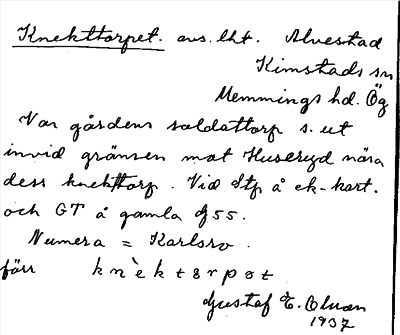 Knekttorpet. avs. lht. Alvestad
Kimstads sn
Memmings hd. Ög
Var gårdens soldattorp s. ut
invid gränsen mot Huseryd nära
dess knekttorp. Vid Stp å ek-kart.
och GT å gamla df 55.
Numera = Karlsro.
förr knèktərpət
Gustaf E. Olson
1937